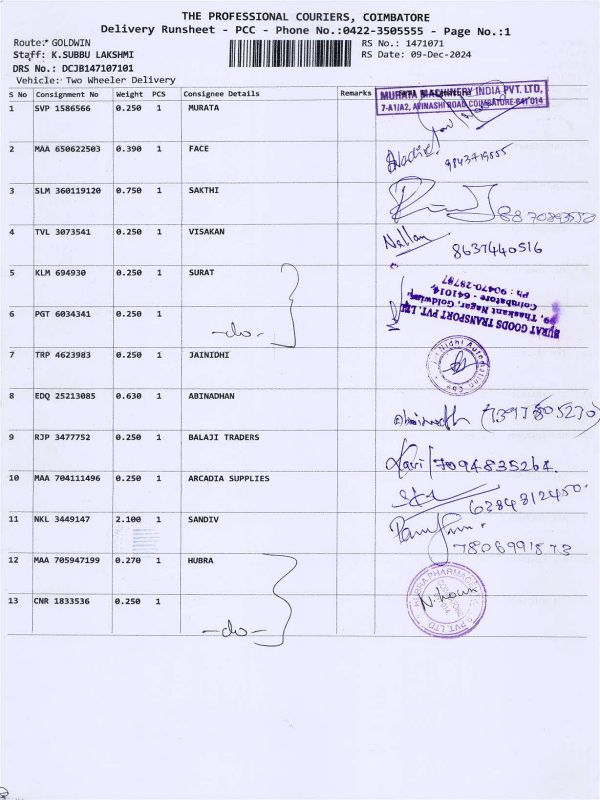 THE PROFESSIONAL COURIERS, COIMBATORE
Delivery Runsheet - PCC - Phone No.:0422-3505555 - Page No.:1
Route:* GOLDWIN RS No.: 1471071
Staff: K.SUBBU LAKSHMI RS Date: 09-Dec-2024
DRS No.: DCJB147107101
Vehicle: Two Wheeler Delivery
S No Consignment No Weight PCS Consignee Details Remarks
1 SVP 1586566 0.250 1 MURATA
MURATA MACHINERY INDIA PVT. LTD,
7-A1/A2, AVINASHI ROAD, COIMBATORE-641 014
2 MAA 650622503 0.390 1 FACE
9843719855
3 SLM 360119120 0.750 1 SAKTHI
4 TVL 3073541 0.250 1 VISAKAN Nallam 8637440516
5 KLM 694930 0.250 1 SURAT
SURAT GOODS TRANSPORT PVT. LTD.
99, Thaskant Nagar, Goldwins,
Coimbatore - 641014.
Ph : 90470-28787
6 PGT 6034341 0.250 1 -do-
7 TRP 4623983 0.250 1 JAINIDHI
Jai Nidhi Automation Cbe
8 EDQ 25213085 0.630 1 ABINADHAN
9 RJP 3477752 0.250 1 BALAJI TRADERS Kavi/7094835264.
10 MAA 704111496 0.250 1 ARCADIA SUPPLIES 6384812450.
11 NKL 3449147 2.100 1 SANDIV
7806991873
12 MAA 705947199 0.270 1 HUBRA
13 CNR 1833536 0.250 1 -do-